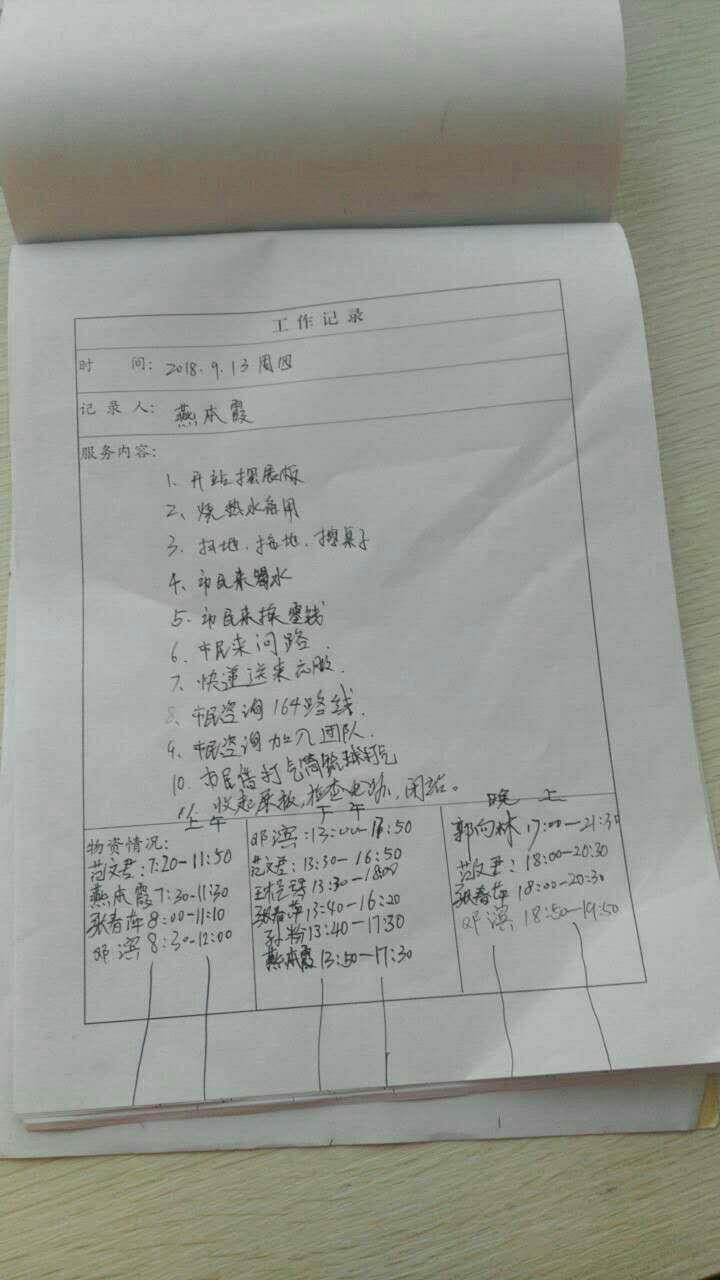 工作记录
时 间: 2018.9.13 周四
记录人: 燕本霞
服务内容:
1、开站摆展板
2、烧热水备用
3、扫地、拖地、擦桌子
4、市民来喝水
5、市民来换零钱
6、市民来问路.
7、快递送来衣服.
8、市民咨询164路线.
9、市民咨询加入团队.
10、市民借打气筒给球打气
11、收起展板,检查电源,闭站。
物资情况:
上午
范文君:7:20-11:50
燕本霞7:30-11:30
张春萍8:00-11:10
邓滨8:30-12:00
下午
邓滨:13:00-18:50
范文君:13:30-16:50
13:30-1800
张春萍13:40-16:20
孙粉13:40-17:30
燕本霞13:50-17:30
晚上
郭向林17:00-21:30
范文君:18:00-20:30
张春萍18:00-20:30
邓滨18:50-19:50